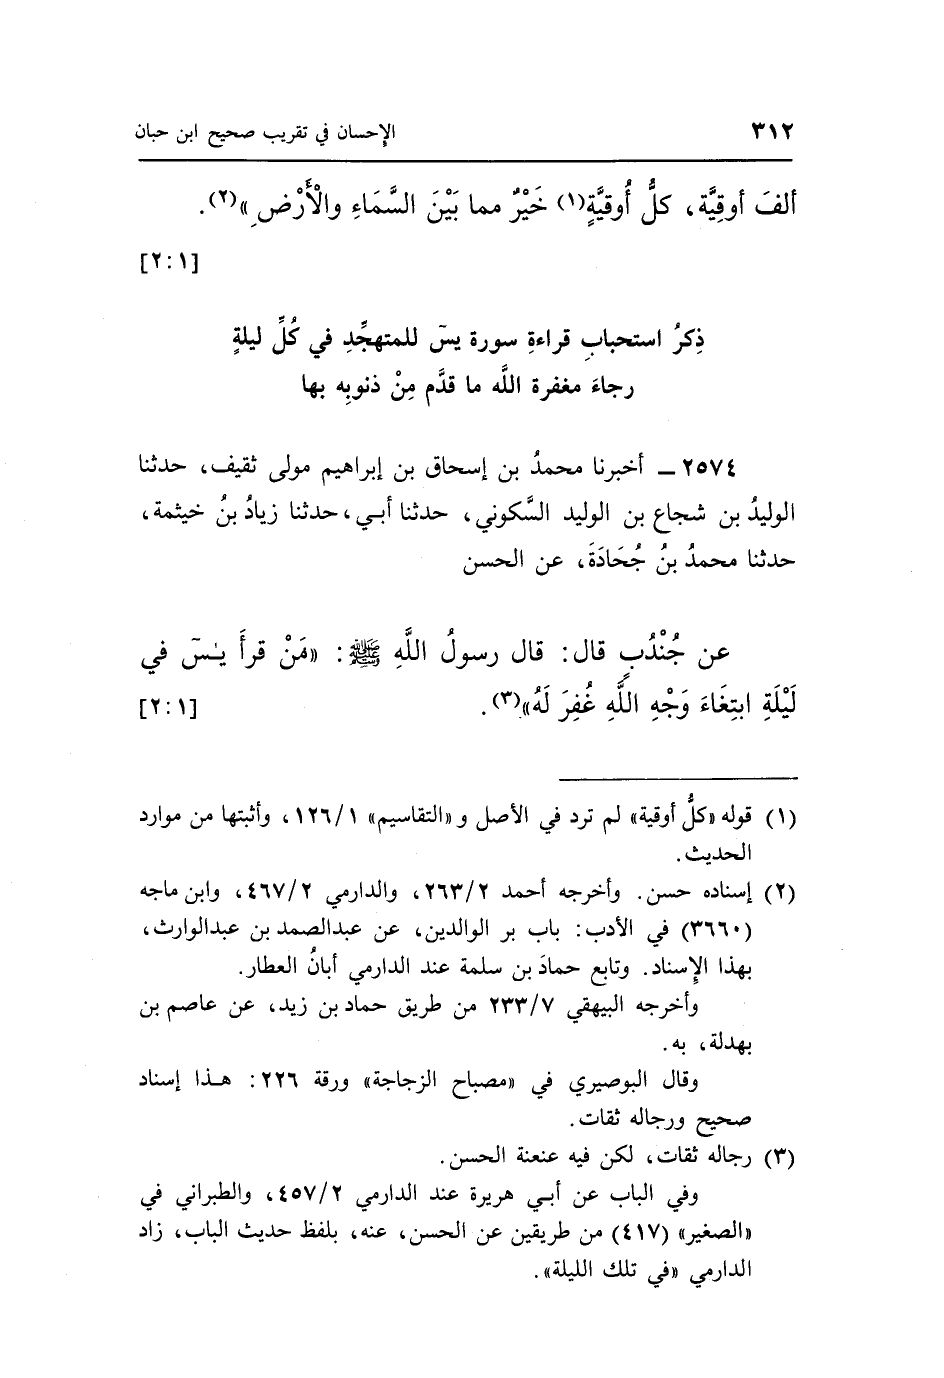 ٣١٢ الإحسان في تقريب صحيح ابن حبان
ألفَ أوقِيَّة، كلُّ أُوقيَّةٍ(١) خَيْرٌ مما بَيْنَ السَّمَاءِ والْأَرْضِ»(٢).
[٢:١]
ذِكرُ استحبابِ قراءةِ سورة يسۤ للمتهجِّدِ في كُلِّ ليلةٍ
رجاءَ مغفرة اللَّه ما قدَّم مِنْ ذنوبِه بها
٢٥٧٤ ـ أخبرنا محمدُ بن إسحاق بن إبراهيم مولى ثقيف، حدثنا
الوليدُ بن شجاع بن الوليد السَّكوني، حدثنا أبـي، حدثنا زيادُ بنُ خيثمة،
حدثنا محمدُ بنُ جُحَادَةَ، عن الحسن
عن جُنْدُبٍ قال: قال رسولُ اللَّهِ ﷺ: «مَنْ قرأَ يـٰسۤ في
لَيْلَةِ ابتِغَاءَ وَجْهِ اللَّهِ غُفِرَ لَهُ»(٣). [٢:١]
(١) قوله «كلُّ أوقية» لم ترد في الأصل و «التقاسيم» ١٢٦/١، وأثبتها من موارد
الحديث.
(٢) إسناده حسن. وأخرجه أحمد ٢٦٣/٢، والدارمي ٤٦٧/٢، وابن ماجه
(٣٦٦٠) في الأدب: باب بر الوالدين، عن عبدالصمد بن عبدالوارث،
بهذا الإسناد. وتابع حمادَ بن سلمة عند الدارمي أبانُ العطار.
وأخرجه البيهقي ٢٣٣/٧ من طريق حماد بن زيد، عن عاصم بن
بهدلة، به.
وقال البوصيري في «مصباح الزجاجة» ورقة ٢٢٦: هـذا إسناد
صحيح ورجاله ثقات.
(٣) رجاله ثقات، لكن فيه عنعنة الحسن.
وفي الباب عن أبـي هريرة عند الدارمي ٤٥٧/٢، والطبراني في
«الصغير» (٤١٧) من طريقين عن الحسن، عنه، بلفظ حديث الباب، زاد
الدارمي «في تلك الليلة».